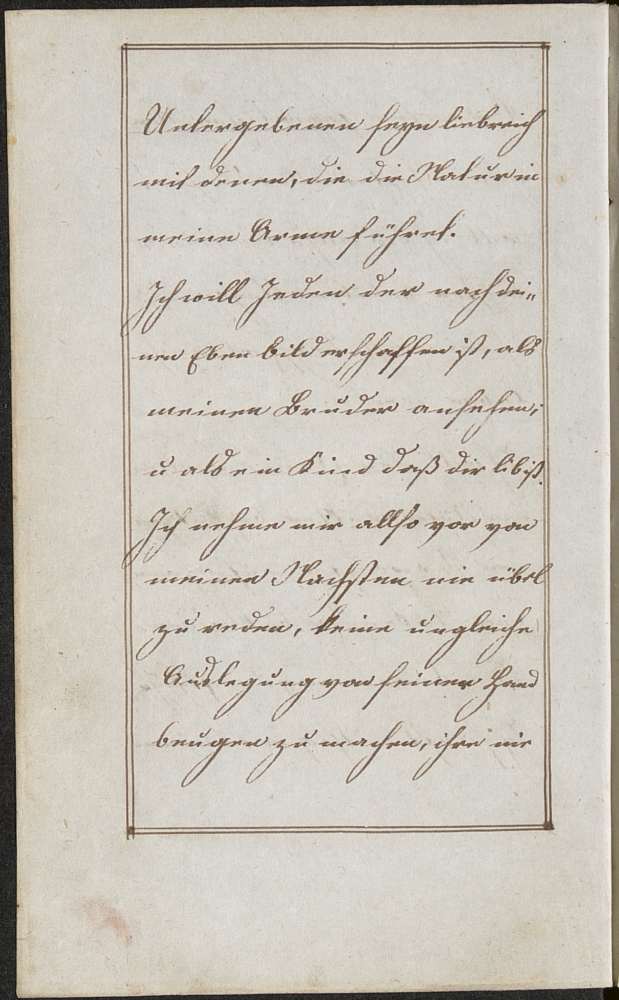 Untergebenen seyn liebreich
mit denen, die die Natur in
meine Arme führet.
Ich will Jeden der nach dei„
nen Eben bild erschaffen ist, als
meinen Bruder ansehen,
u als ein Kind daß dir lib ist.
Ich nehme mir allso vor von
meinen Nachsten nie übel
zu reden, keine ungleiche
Auslegung von seiner Hand
beugen zu machen, ihm nie